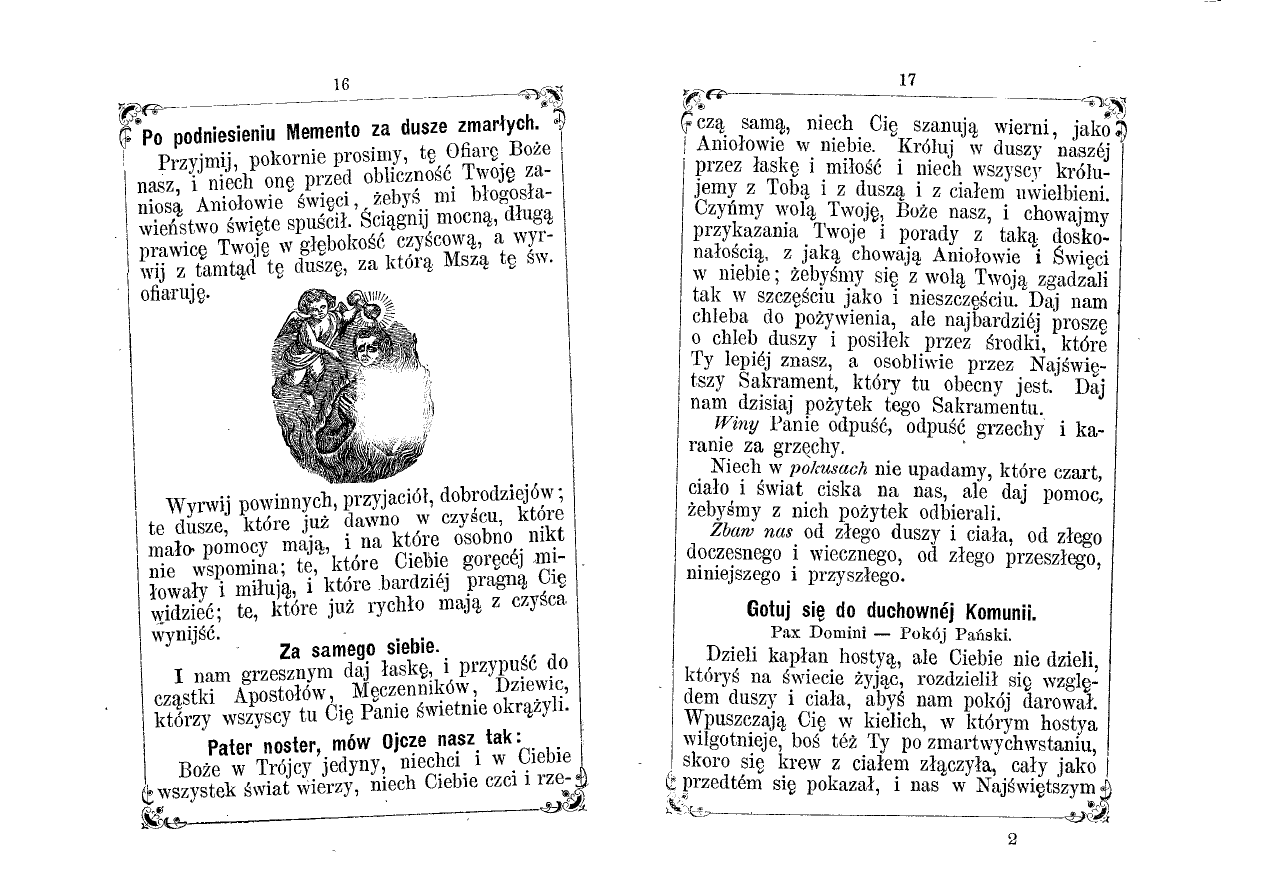 16
Po podniesieniu Memento za dusze zmarłych.
Przyjmij, pokornie prosimy, tę Ofiarę Boże
nasz, i niech onę przed obliczność Twoję za-
niosą Aniołowie święci, żebyś mi błogosła-
wieństwo święte spuścił. Ściągnij mocną, długą
prawicę Twoję w głębokość czyścową, a wyr-
wij z tamtąd tę duszę, za którą Mszą tę św.
ofiaruję.
Wyrwij powinnych, przyjaciół, dobrodziejów;
te dusze, które już dawno w czyścu, które
mało pomocy mają, i na które osobno nikt
nie wspomina; te, które Ciebie goręcéj mi-
łowały i miłują, i które bardziéj pragną Cię
widzieć; te, które już rychło mają z czyśca
wynijść.
Za samego siebie.
I nam grzesznym daj łaskę, i przypuść do
cząstki Apostołów, Męczenników, Dziewic,
którzy wszyscy tu Cię Panie świetnie okrążyli.
Pater noster, mów Ojcze nasz tak:
Boże w Trójcy jedyny, niechci i w Ciebie
wszystek świat wierzy, niech Ciebie czci i rze-
17
czą samą, niech Cię szanują wierni, jako
Aniołowie w niebie. Króluj w duszy naszéj
przez łaskę i miłość i niech wszyscy królu-
jemy z Tobą i z duszą i z ciałem uwielbieni.
Czyńmy wolą Twoję, Boże nasz, i chowajmy
przykazania Twoje i porady z taką dosko-
nałością, z jaką chowają Aniołowie i Święci
w niebie; żebyśmy się z wolą Twoją zgadzali
tak w szczęściu jako i nieszczęściu. Daj nam
chleba do pożywienia, ale najbardziéj proszę
o chleb duszy i posiłek przez środki, które
Ty lepiéj znasz, a osobliwie przez Najświę-
tszy Sakrament, który tu obecny jest. Daj
nam dzisiaj pożytek tego Sakramentu.
Winy Panie odpuść, odpuść grzechy i ka-
ranie za grzęchy.
Niech w pokusach nie upadamy, które czart,
ciało i świat ciska na nas, ale daj pomoc,
żebyśmy z nich pożytek odbierali.
Zbaw nas od złego duszy i ciała, od złego
doczesnego i wiecznego, od złego przeszłego,
niniejszego i przyszłego.
Gotuj się do duchownéj Komunii.
Pax Domini — Pokój Pański.
Dzieli kapłan hostyą, ale Ciebie nie dzieli,
któryś na świecie żyjąc, rozdzielił się wzglę-
dem duszy i ciała, abyś nam pokój darował.
Wpuszczają Cię w kielich, w którym hostya
wilgotnieje, boś téż Ty po zmartwychwstaniu,
skoro się krew z ciałem złączyła, cały jako
przedtém się pokazał, i nas w Najświętszym
2